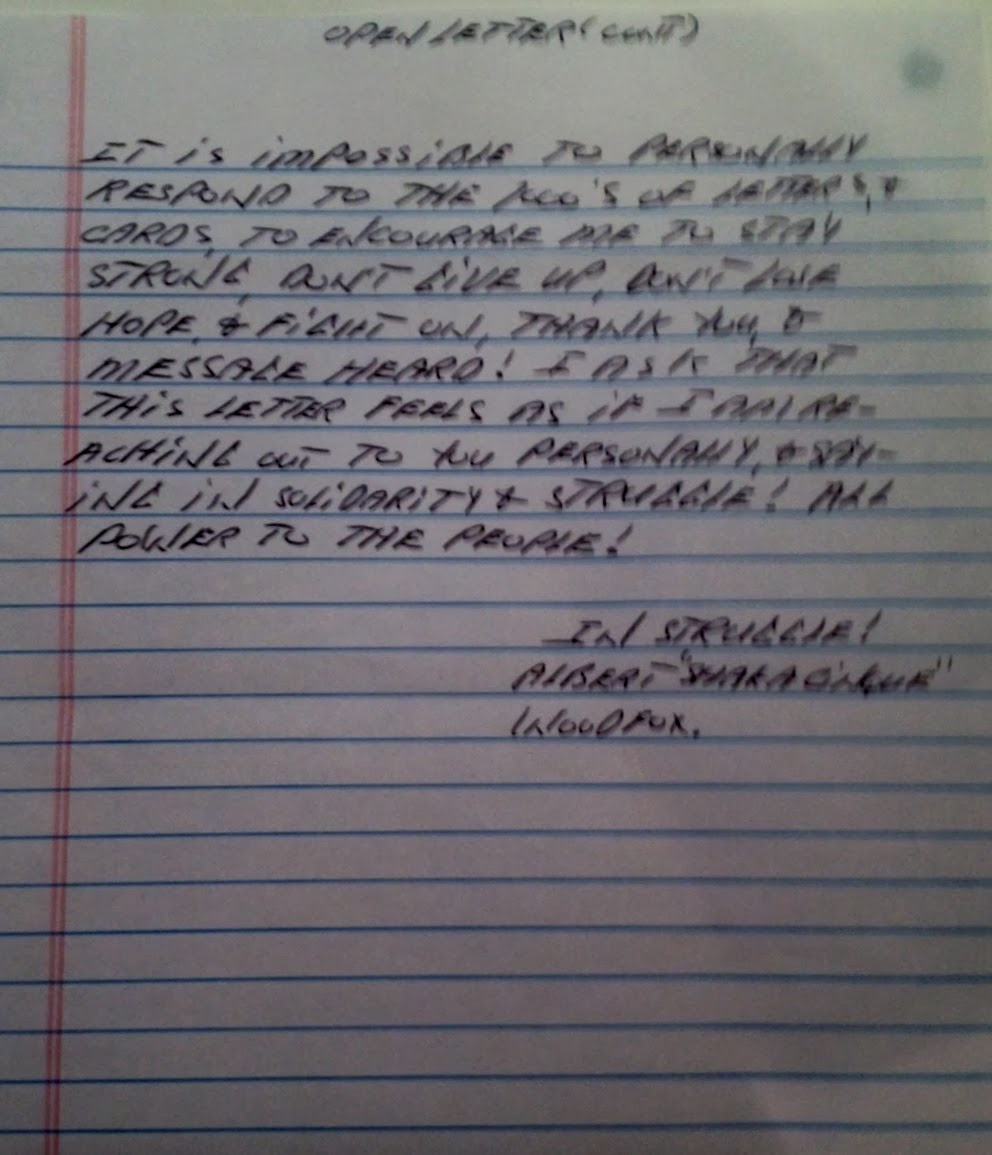 OPEN LETTER (CONT)
IT is impossible TO PERSONALLY
RESPOND TO THE 100'S OF LETTER'S, &
CARDS, TO ENCOURAGE ME TO STAY
STRONG, DON'T GIVE UP, DON'T LOSE
HOPE, & FIGHT ON, THANK YOU, &
MESSAGE HEARD! I ASK THAT
THIS LETTER FEELS AS IF I AM RE-
ACHING OUT TO YOU PERSONALLY, & SAY-
ING IN SOLIDARITY & STRUGGLE! ALL
POWER TO THE PEOPLE!
IN STRUGGLE!
ALBERT "SHAKA CINQUE"
WOODFOX.